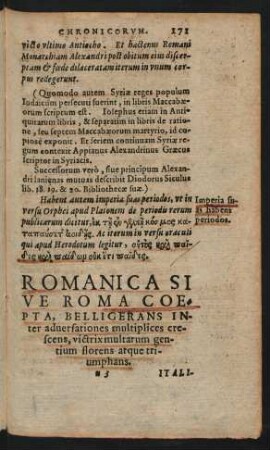 CHRONICORVM. 171
victo vltimo Antiocho. Et hactenus Romani
Monarchiam Alexandri post obitum eius discer-
ptam & fœde dilaceratam iterum in vnum cor-
pus redegerunt.
(Quomodo autem Syriæ reges populum
Iudaicum persecuti fuerint, in libris Maccabæ-
orum scriptum est. Iosephus etiam in Anti-
quitatum libris, & separatim in libris de ratio-
ne, seu septem Maccabæorum martyrio, id co-
piose exponit. Et seriem continuam Syriæ re-
gum contexit Appianus Alexandrinus Græcus
scriptor in Syriacis.
Successorum verò, siue principum Alexan-
dri lanienas mutuas describit Diodorus Siculus
lib. 18. 19. & 20. Bibliothecæ suæ.)
Habent autem imperia suas periodos, vt in
versu Orphei apud Platonem de periodo rerum
publicarum dicitur,
Ac iterum in versu oraculi
qui apud Herodotum legitur,
Imperia su-
as habent
periodos.
ROMANICA SI
VE ROMA COE-
PTA, BELLIGERANS IN-
ter aduersationes multiplices cre-
scens, victrix multarum gen-
tium florens atque tri-
umphans.
ITALI-